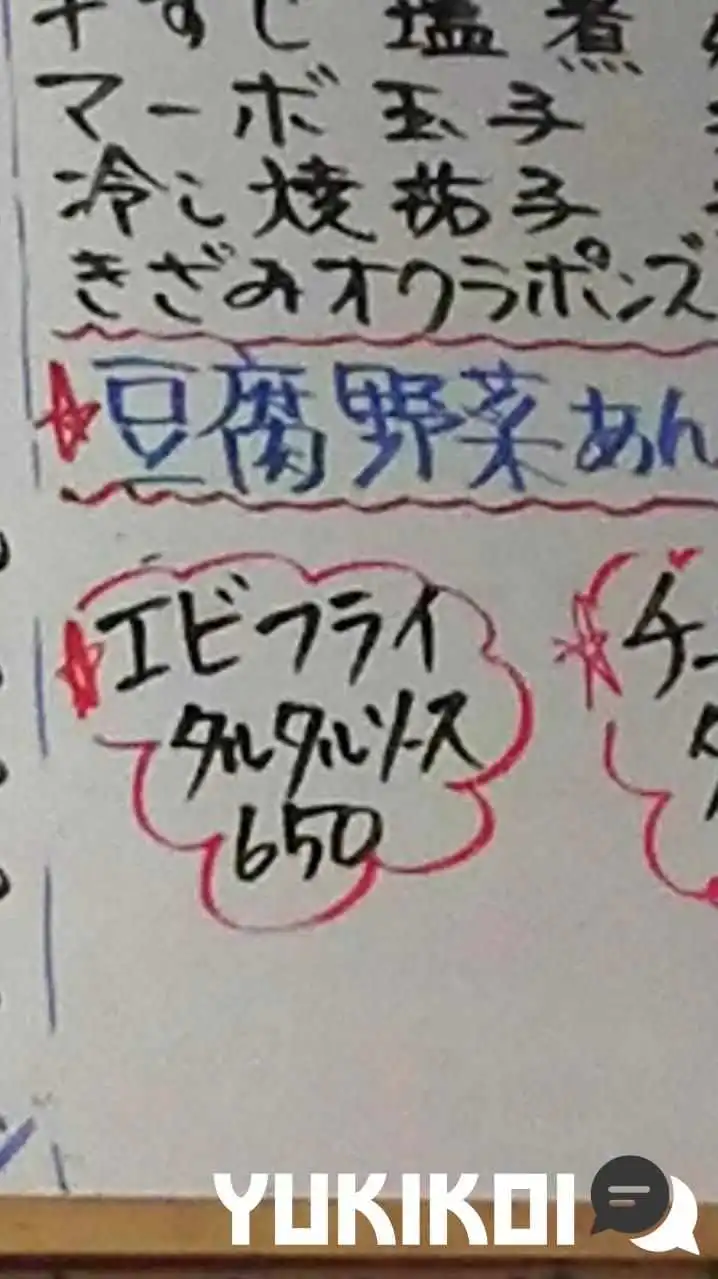 牛すじ塩煮
マーボ玉子
冷し焼茄子
きざみオクラポンズ
豆腐野菜あん
エビフライ
タルタルソース
650
チー
タ
YUKIKOI